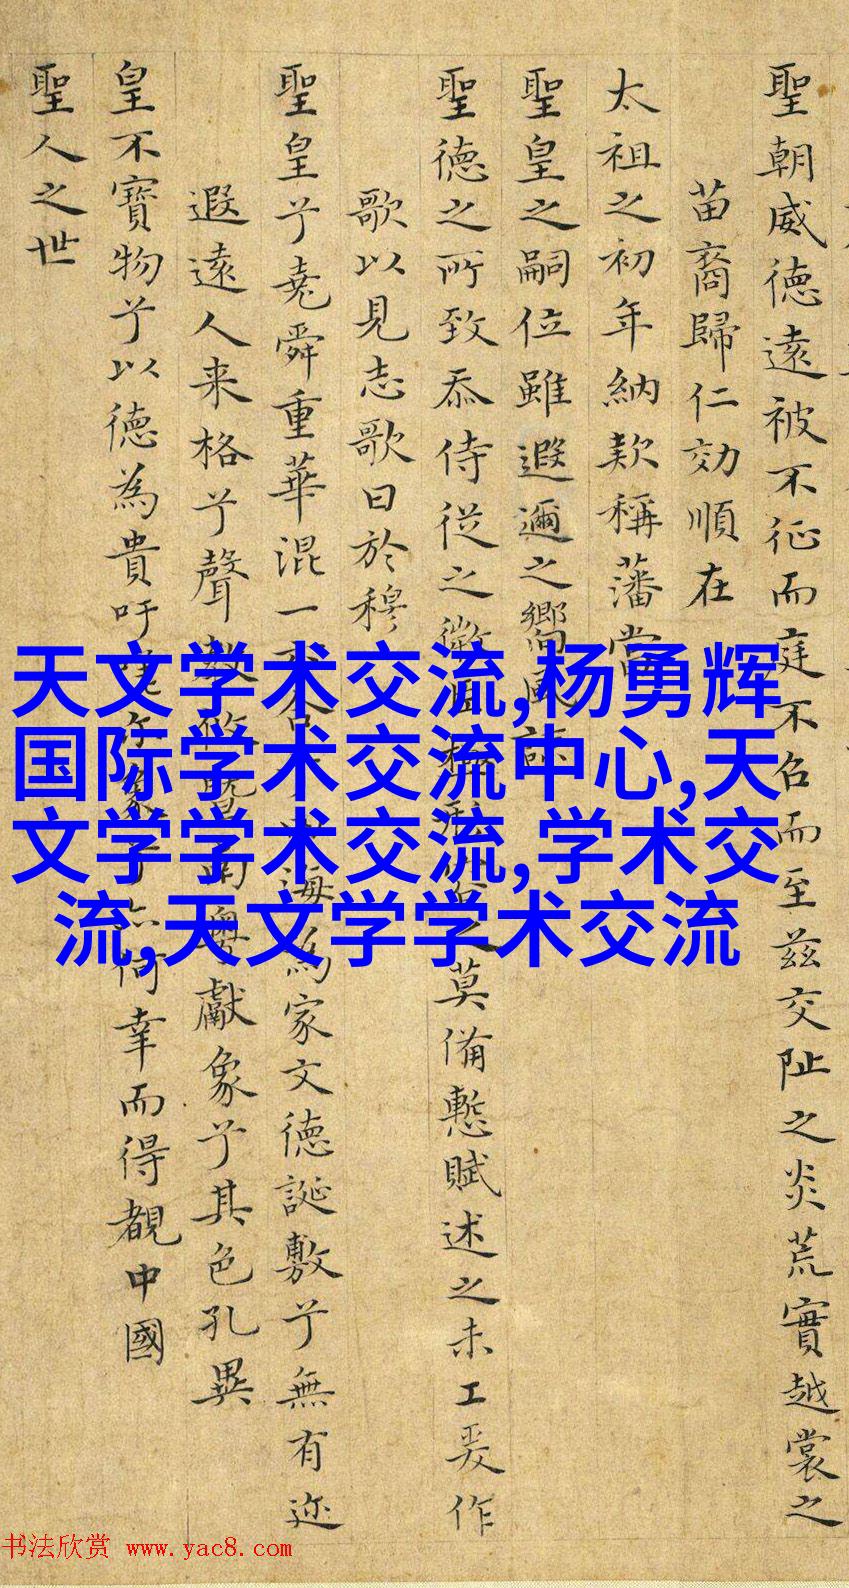 聖朝威德遠被不征而庭不召而至茲交阯之炎荒實越裳之
苗裔歸仁効順在
太祖之初年納款稱藩當
聖皇之嗣位雖遐邇之嚮風諒
聖德之所致忝侍從之微莫備慙賦述之未工爰作
歌以見志歌曰於穆
聖皇兮堯舜重華混一海為家文德誕敷兮無有迩
遐遠人来格兮聲教南粵獻象兮其色孔異
皇不寶物兮以德為貴吁象何幸而得覩中國
聖人之世
天文学术交流,杨勇辉
国际学术交流中心,天
文学学术交流,学术交
流,天文学学术交流
书法欣赏 www.yac8.com